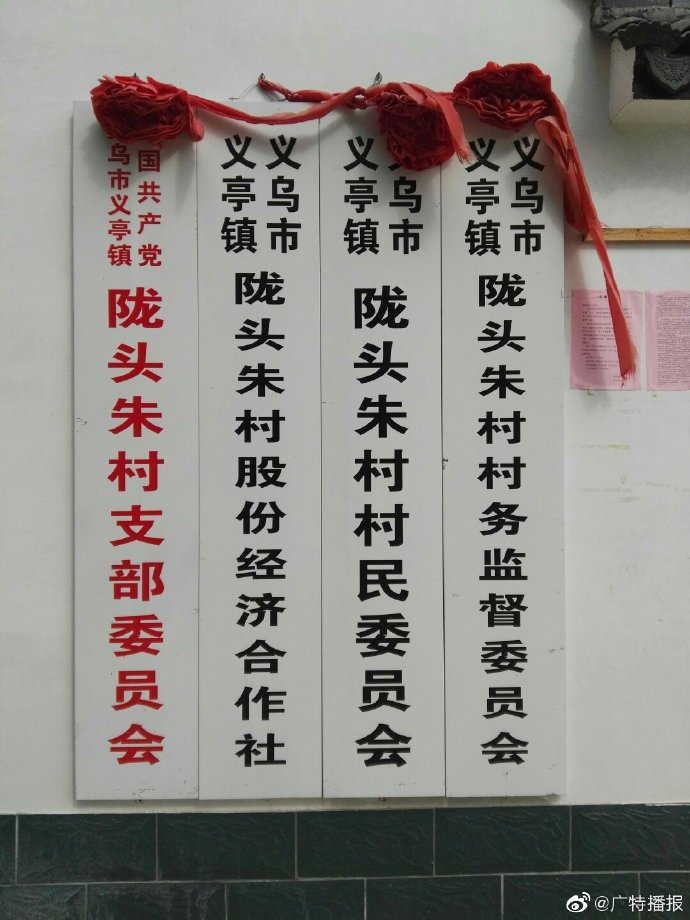 国共产党
乌市义亭镇
陇头朱村支部委员会
义乌市
义亭镇
陇头朱村股份经济合作社
乌市
义亭镇
陇头朱村村民委员会
义乌市
义亭镇
陇头朱村村务监督委员会
@广特播报